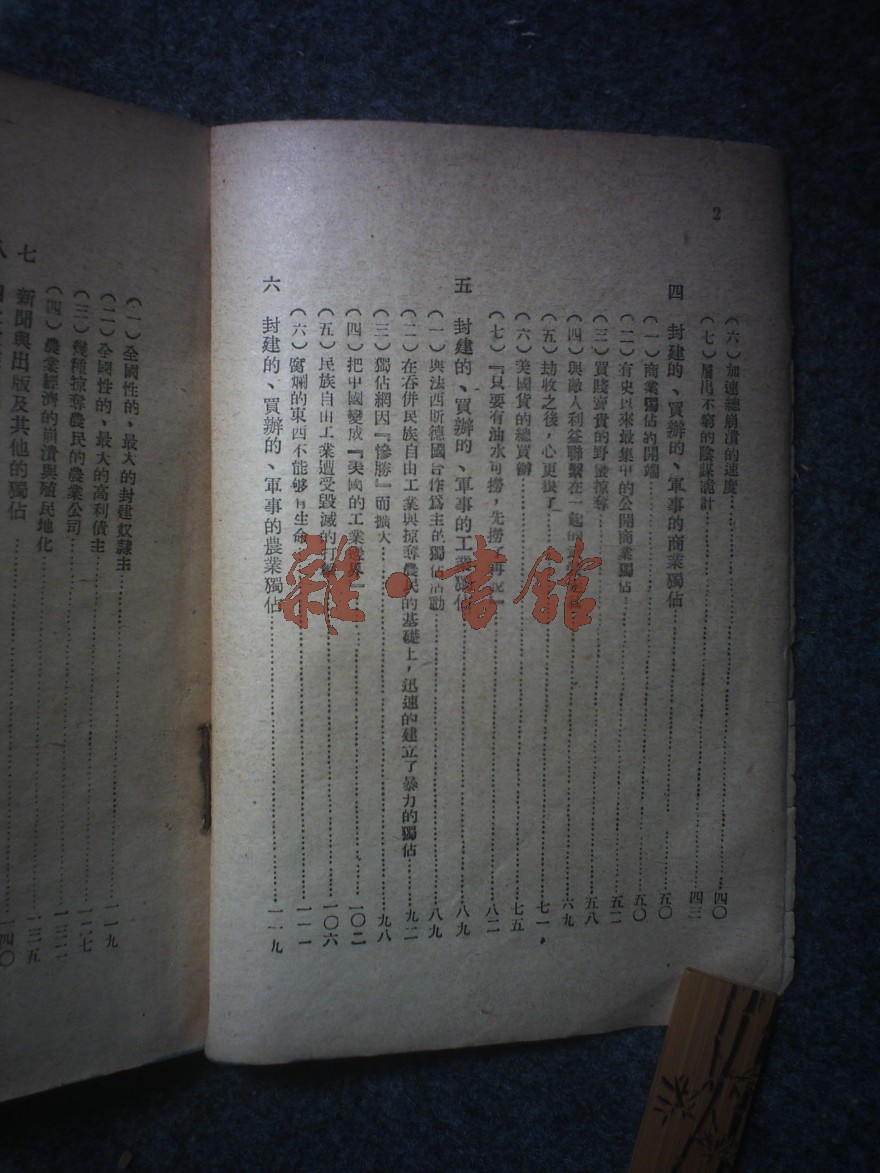 2
(六)加速總崩潰的速度……四〇
(七)層出不窮的陰謀詭計……四三
四 封建的、買辦的、軍事的商業獨佔……五〇
(一)商業獨佔的開端……五〇
(二)有史以來最集中的公開商業獨佔……五二
(三)買賤賣貴的野蠻掠奪……五八
(四)與敵人利益聯繫在一起的……六九
(五)劫收之後,心更狠了……七一
(六)美國貨的總買辦……七五
(七)『只要有油水可撈,先撈了再說』……八二
五 封建的、買辦的、軍事的工業獨佔……八九
(一)與法西斯德國合作爲主的獨佔活動……八九
(二)在吞併民族自由工業與掠奪農民的基礎上,迅速的建立了暴力的獨佔……九二
(三)獨佔網因『慘勝』而擴大……九八
(四)把中國變成『美國的工業……一〇二
(五)民族自由工業遭受毀滅的打……一〇六
(六)腐爛的東西不能够有生命……一一一
六 封建的、買辦的、軍事的農業獨佔……一一九
(一)全國性的、最大的封建奴隷主……一一九
(二)全國性的、最大的高利債主……一二七
(三)幾種掠奪農民的農業公司……一三二
(四)農業經濟的崩潰與殖民地化……一三五
七 新聞與出版及其他的獨佔……一四〇
八
雜·書館